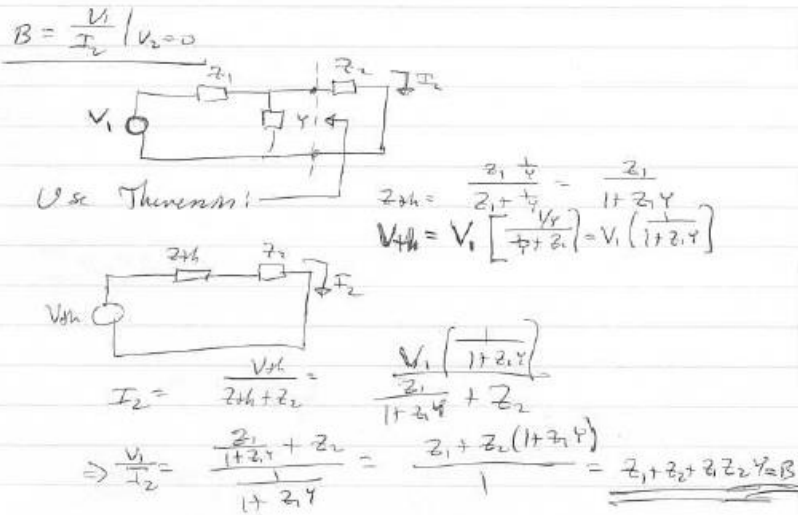 B = V₁/I₂ | V₂=0
Z₁ Z₂ I₂
V₁ Y
Use Thevenin:
Zth = (Z₁ 1/Y)/(Z₁ + 1/Y) = Z₁/(1+Z₁Y)
Vth = V₁ [(1/Y)/(1/Y + Z₁)] = V₁ (1/(1+Z₁Y))
Zth Z₂ I₂
Vth
I₂ = Vth/(Zth+Z₂) = V₁ (1/(1+Z₁Y))/(Z₁/(1+Z₁Y) + Z₂)
⇒ V₁/I₂ = (Z₁/(1+Z₁Y) + Z₂)/(1/(1+Z₁Y)) = (Z₁+Z₂(1+Z₁Y))/1 = Z₁+Z₂+Z₁Z₂Y=B